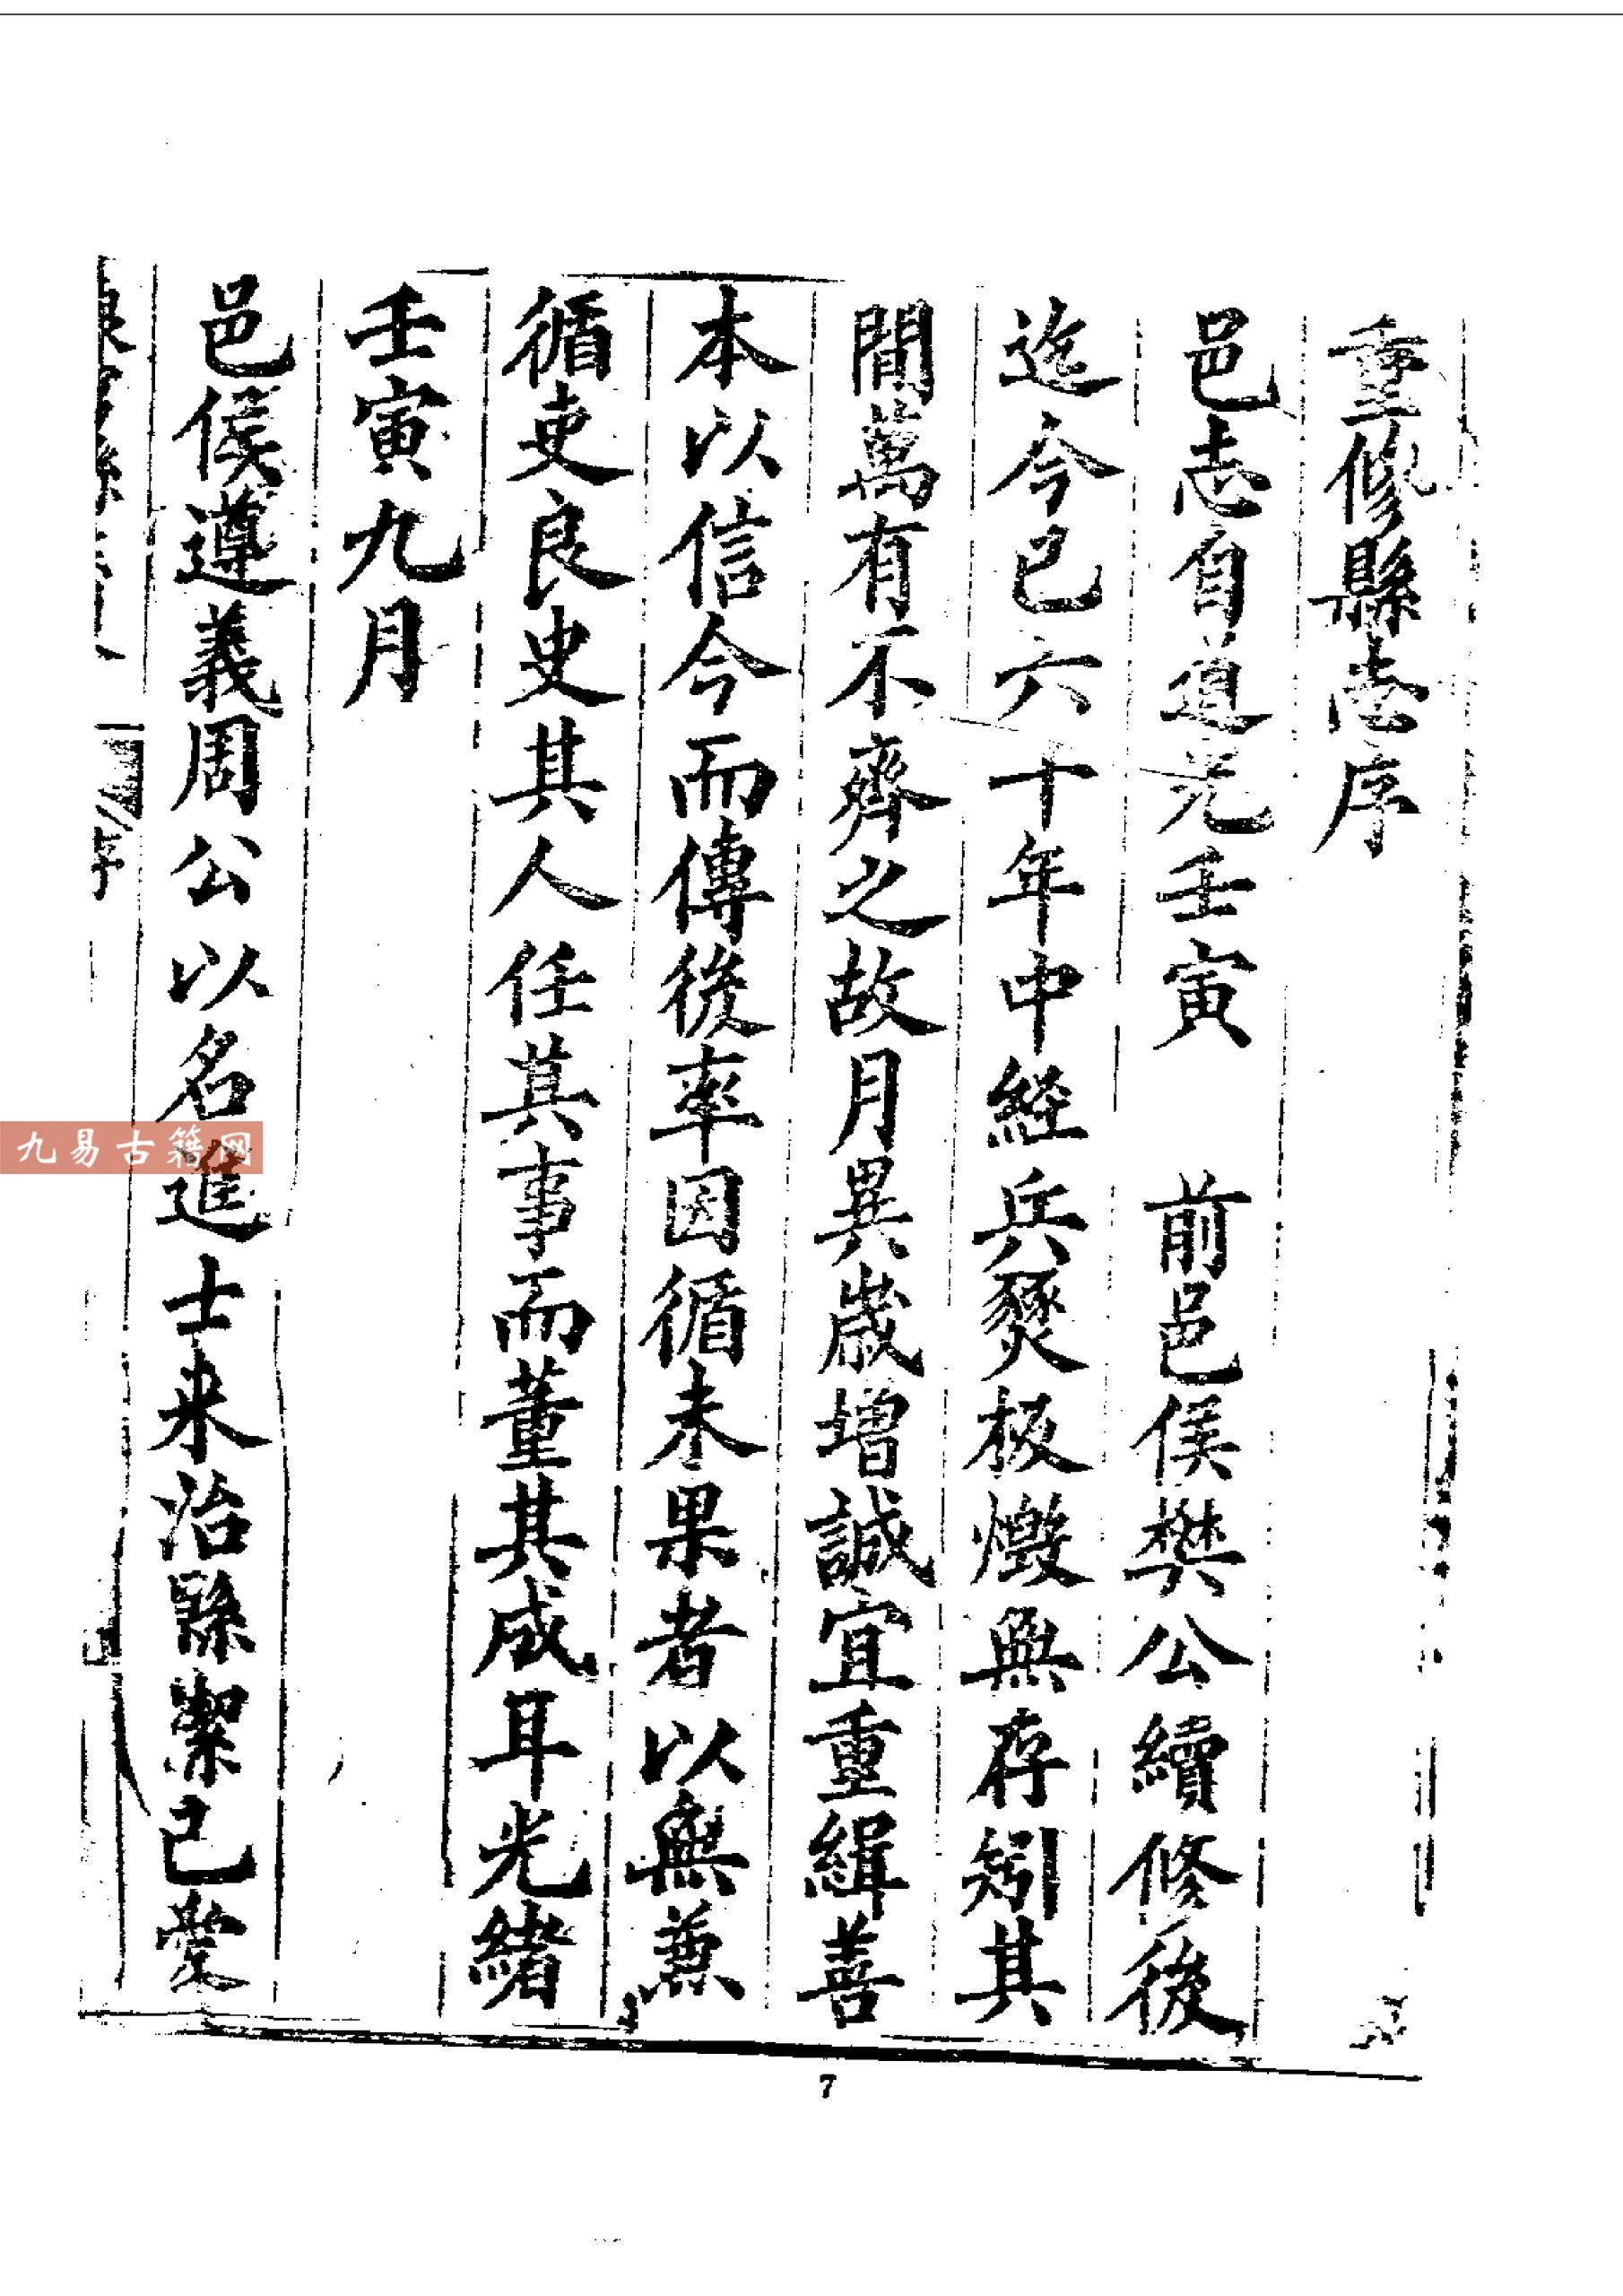 重修縣志序
邑志自道光壬寅　前邑侯樊公續修後
迄今已六十年中經兵燹板燬無存矧其
間萬有不齊之故月異歲增誠宜重緝善
本以信今而傳後率因循未果者以無兼
循吏良史其人任其事而董其成耳光緒
壬寅九月
邑侯遵義周公以名進士来治縣潔己愛
序
九易古籍网
7